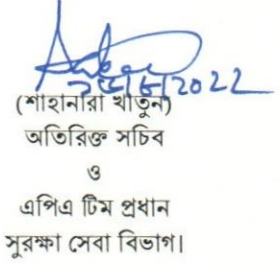 ২৫/৮/2022
(শাহানারা খাতুন)
অতিরিক্ত সচিব
ও
এপিএ টিম প্রধান
সুরক্ষা সেবা বিভাগ।